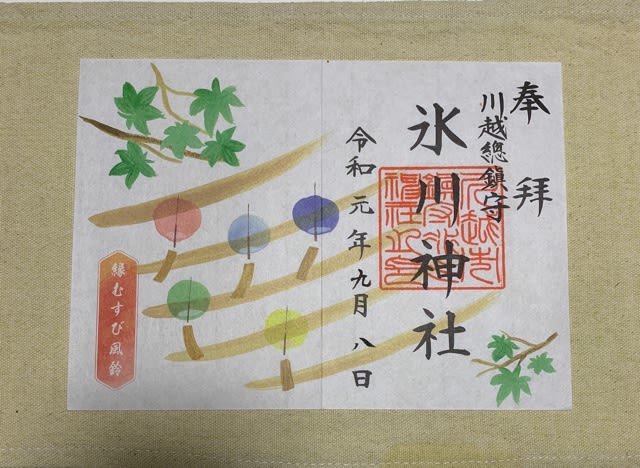 奉拝
川越總鎮守
氷川神社
令和元年九月八日
縁むすび風鈴